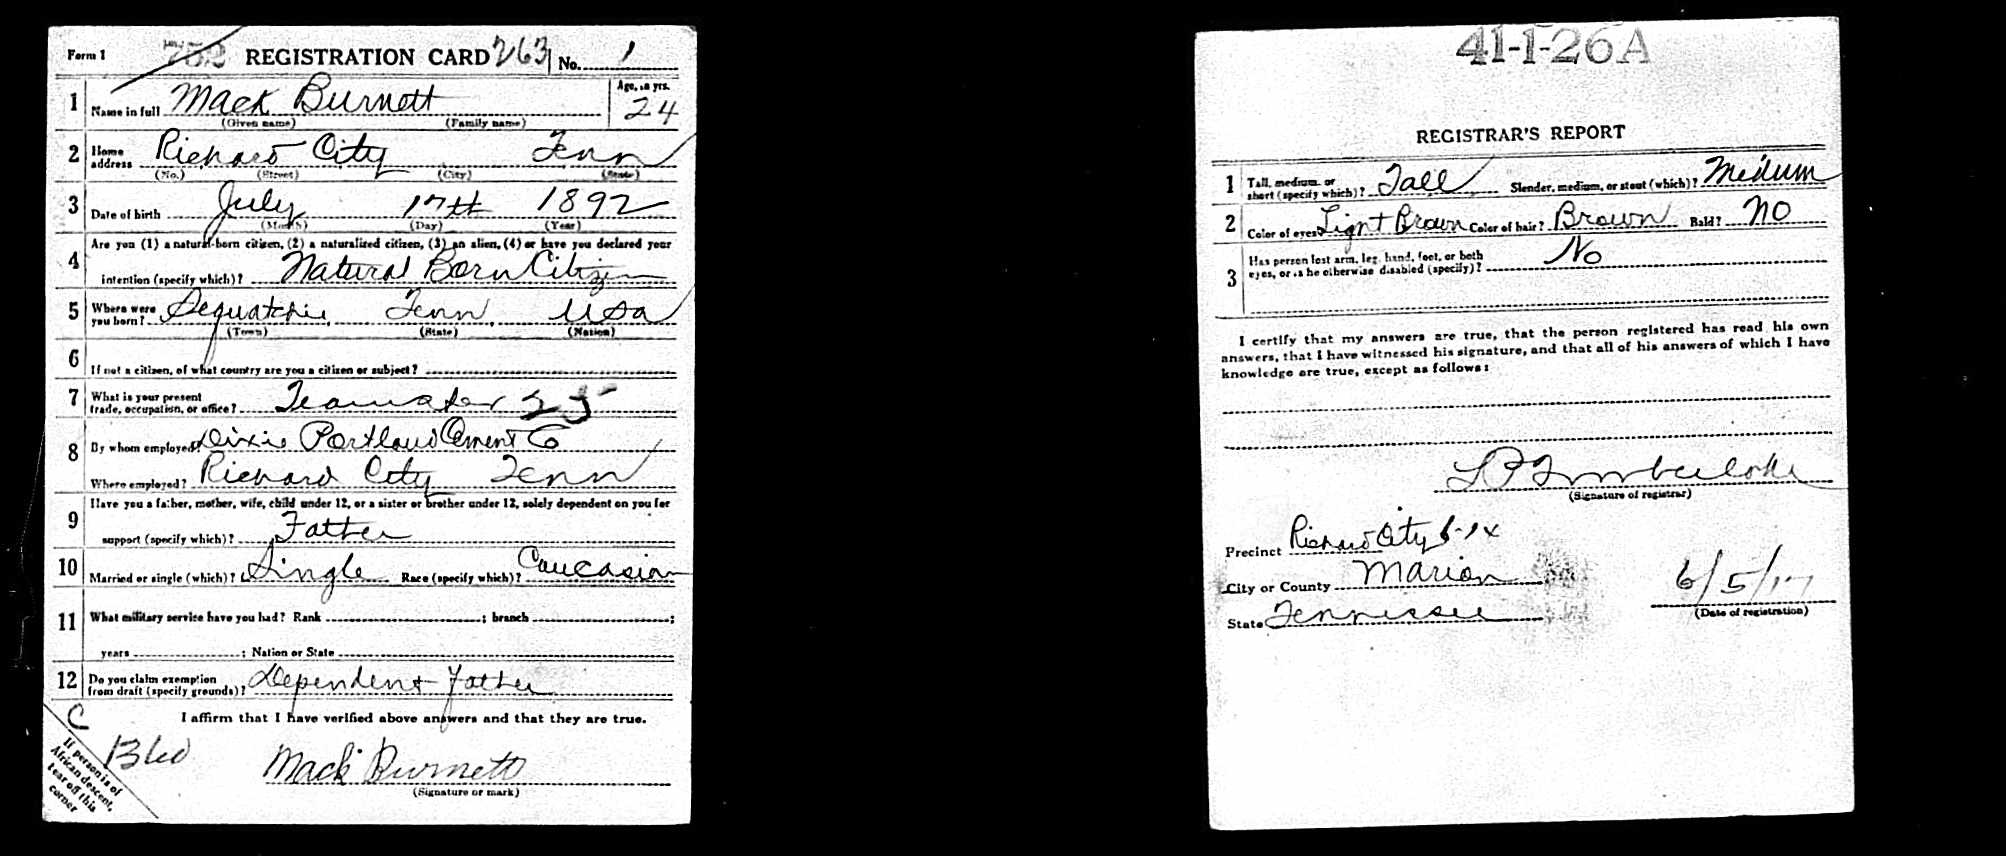 Form 1 752 REGISTRATION CARD 263 No. 1
1 Name in full Mack Burnett Age, in yrs. 24
(Given name) (Family name)
2 Home address Richard City Tenn
(No.) (Street) (City) (State)
3 Date of birth July 17th 1892
(Month) (Day) (Year)
Are you (1) a natural-born citizen, (2) a naturalized citizen, (3) an alien, (4) or have you declared your
4 intention (specify which)? Natural Born Citizen
5 Where were you born? Sequatchie Tenn. USA
(Town) (State) (Nation)
6 If not a citizen, of what country are you a citizen or subject?
7 What is your present
trade, occupation, or office? Teamster 25
8 By whom employed? Dixie Portland Cement Co
Where employed? Richard City Tenn
Have you a father, mother, wife, child under 12, or a sister or brother under 12, solely dependent on you for
9 support (specify which)? Father
10 Married or single (which)? Single Race (specify which)? Caucasian
11 What military service have you had? Rank ; branch ;
years ; Nation or State
12 Do you claim exemption
from draft (specify grounds)? Dependent Father
I affirm that I have verified above answers and that they are true.
C
If person is of
African descent,
tear off this
corner
Mack Burnett
(Signature or mark)
41-1-26A
REGISTRAR'S REPORT
1 Tall, medium, or
short (specify which)? Tall Slender, medium, or stout (which)? Medium
2 Color of eyes? Light Brown Color of hair? Brown Bald? No
3 Has person lost arm, leg, hand, foot, or both
eyes, or is he otherwise disabled (specify)? No
I certify that my answers are true, that the person registered has read his own
answers, that I have witnessed his signature, and that all of his answers of which I have
knowledge are true, except as follows:
L P Timberlake
(Signature of registrar)
Precinct Richard City
City or County Marion
State Tennessee
6/5/17
(Date of registration)